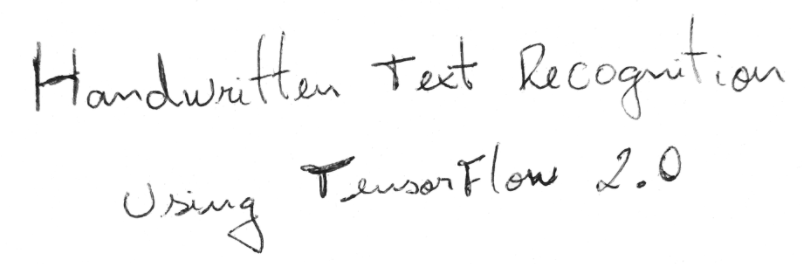 Handwritten Text Recognition
Using TensorFlow 2.0